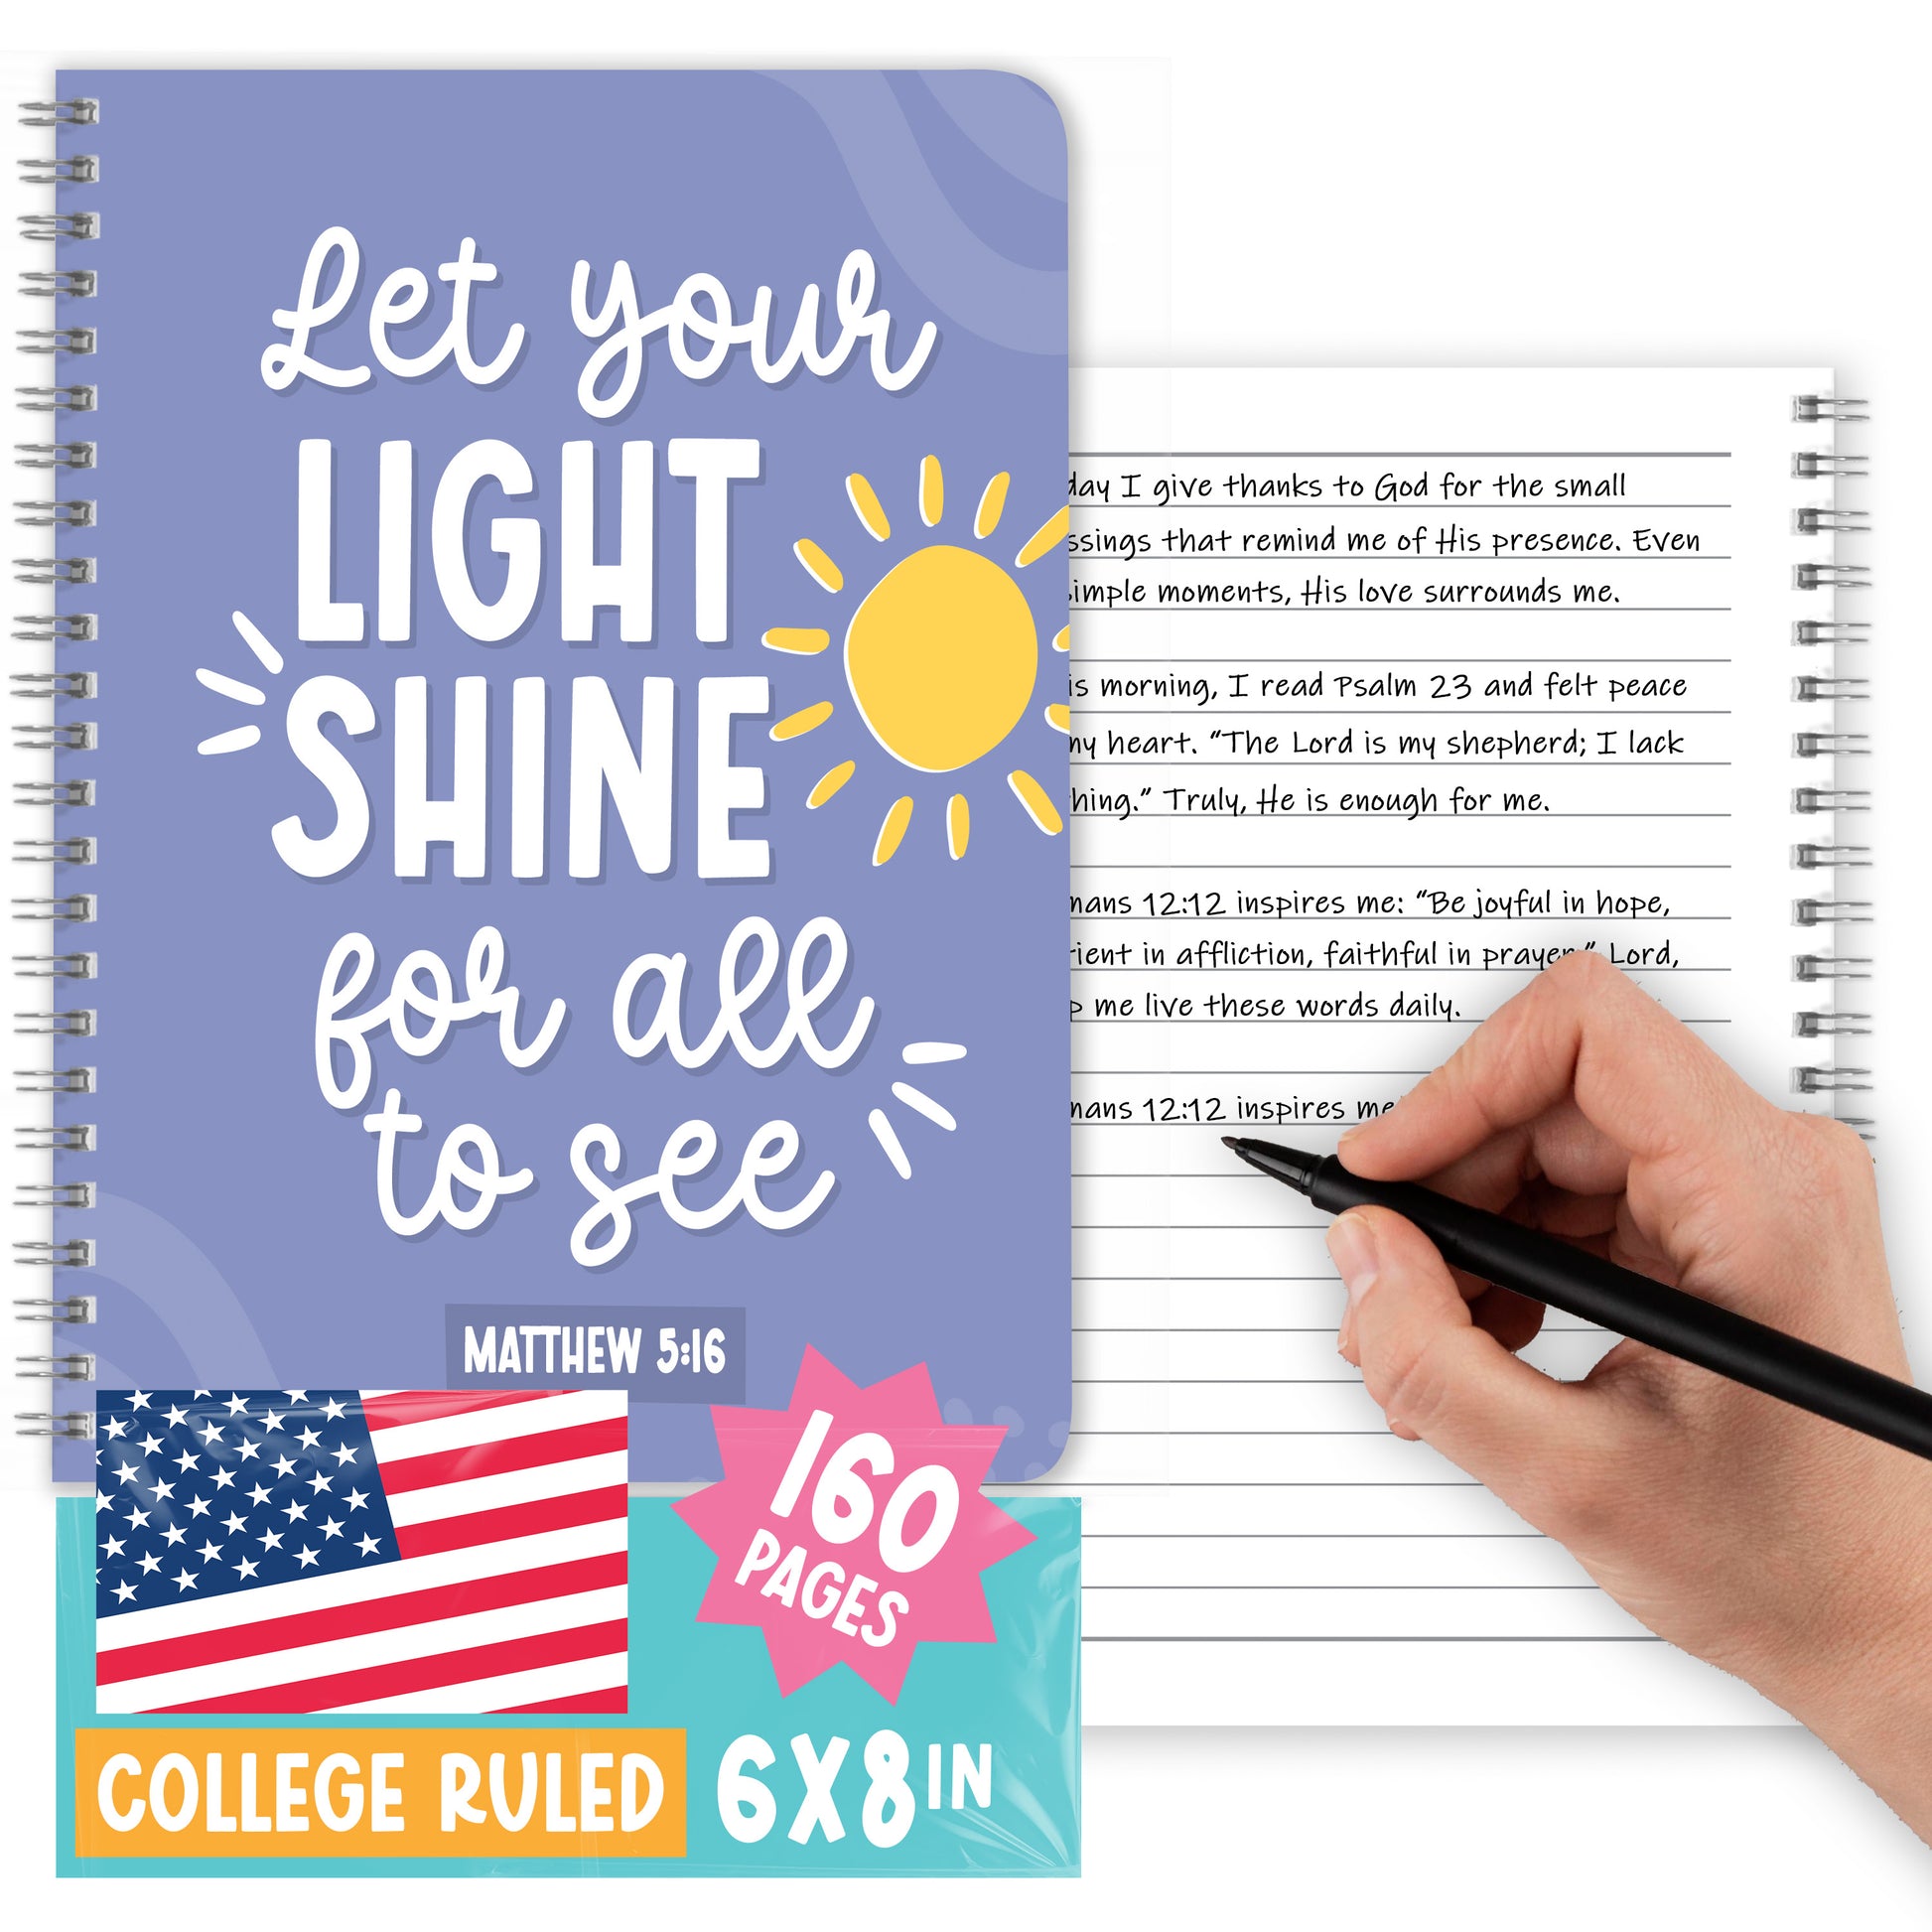 Let your
LIGHT
SHINE
for all
to see
MATTHEW 5:16
160
PAGES
COLLEGE RULED
6X8 IN
day I give thanks to God for the small
ssings that remind me of His presence. Even
simple moments, His love surrounds me.
is morning, I read Psalm 23 and felt peace
my heart. “The Lord is my shepherd; I lack
hing.” Truly, He is enough for me.
mans 12:12 inspires me: “Be joyful in hope,
tient in affliction, faithful in prayer.” Lord,
p me live these words daily.
mans 12:12 inspires me